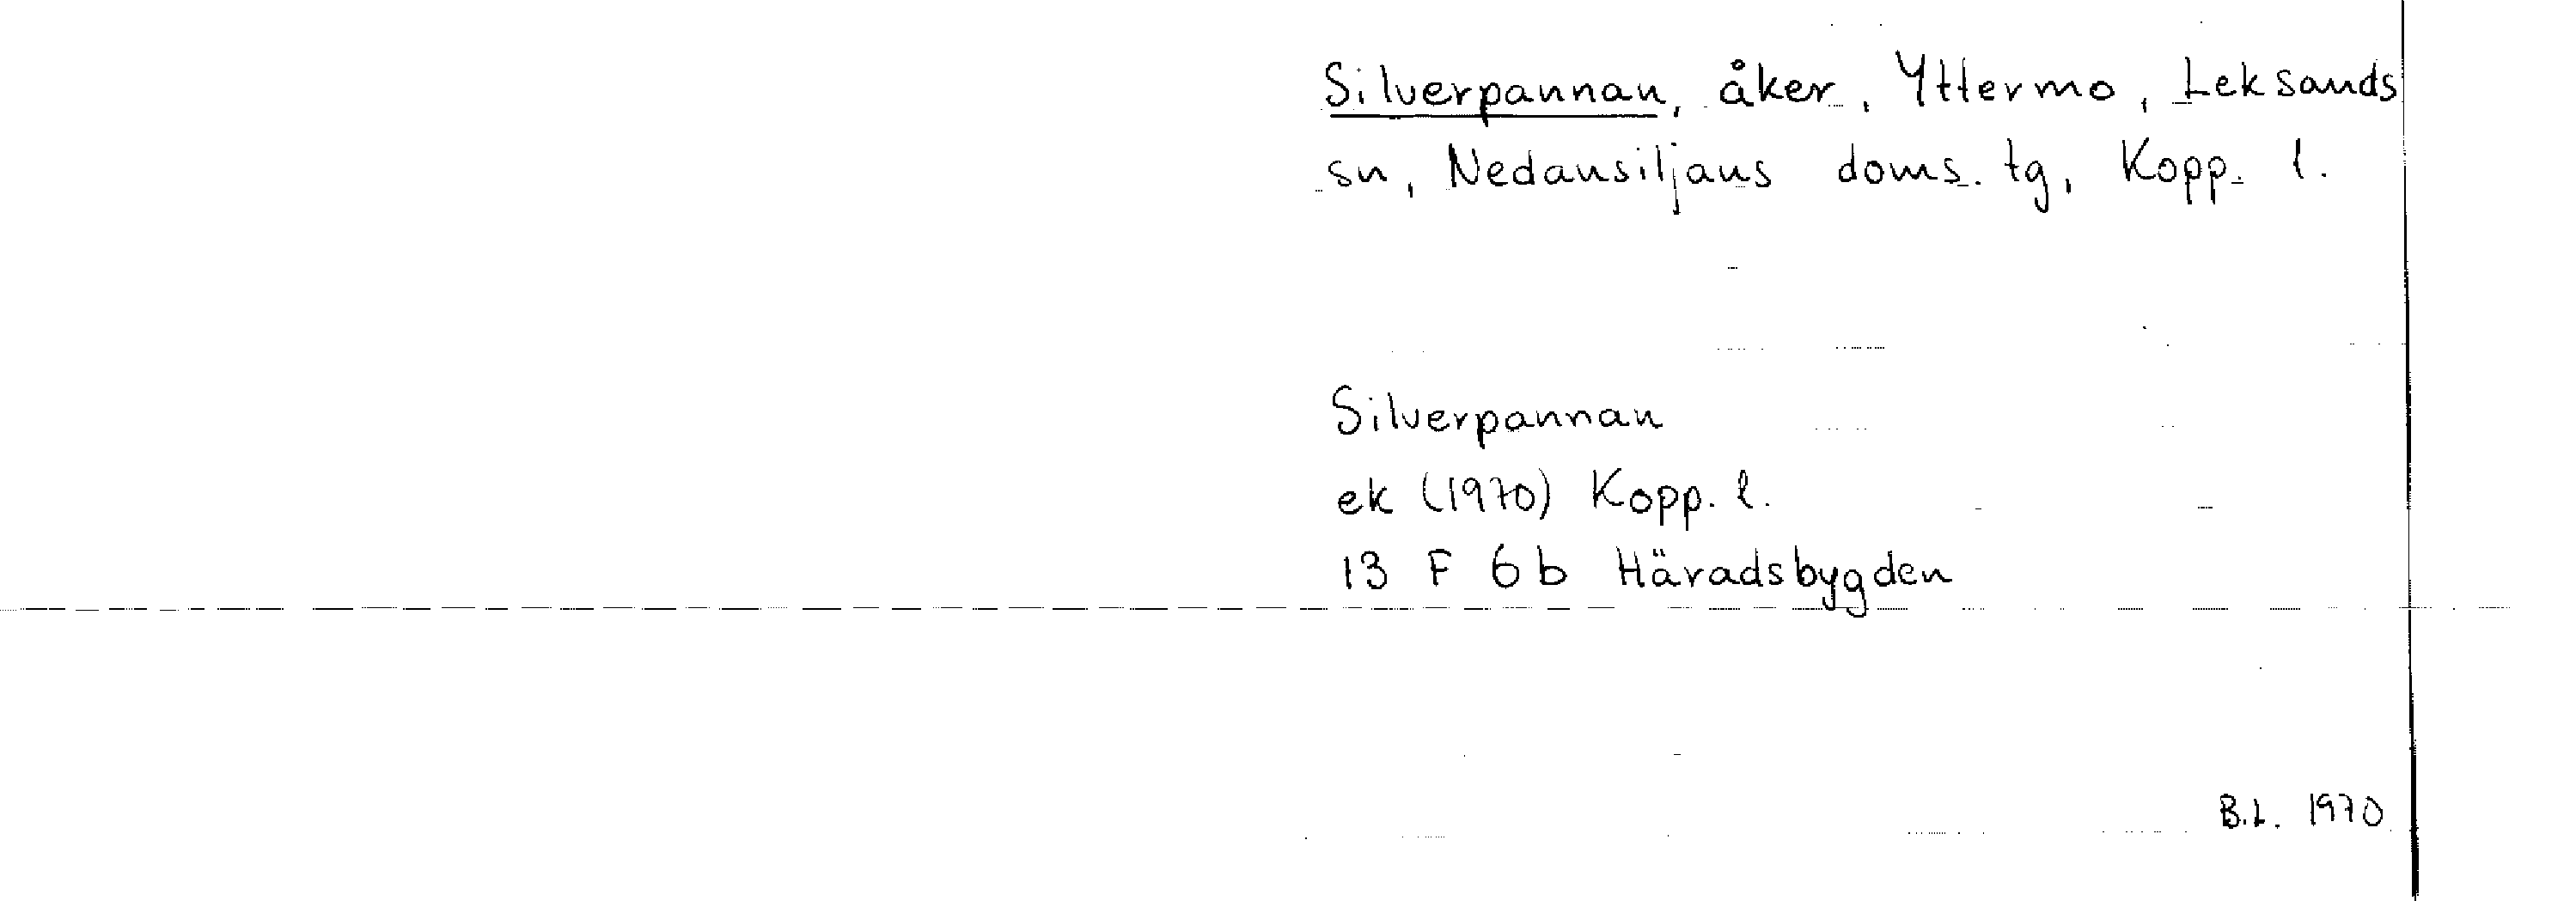 Silverpannan, åker, Yttermo, Leksands
sn, Nedansiljans doms. tg, Kopp. l.
Silverpannan
ek (1970) Kopp. l.
13 F 6 b Häradsbygden
B.L. 1970